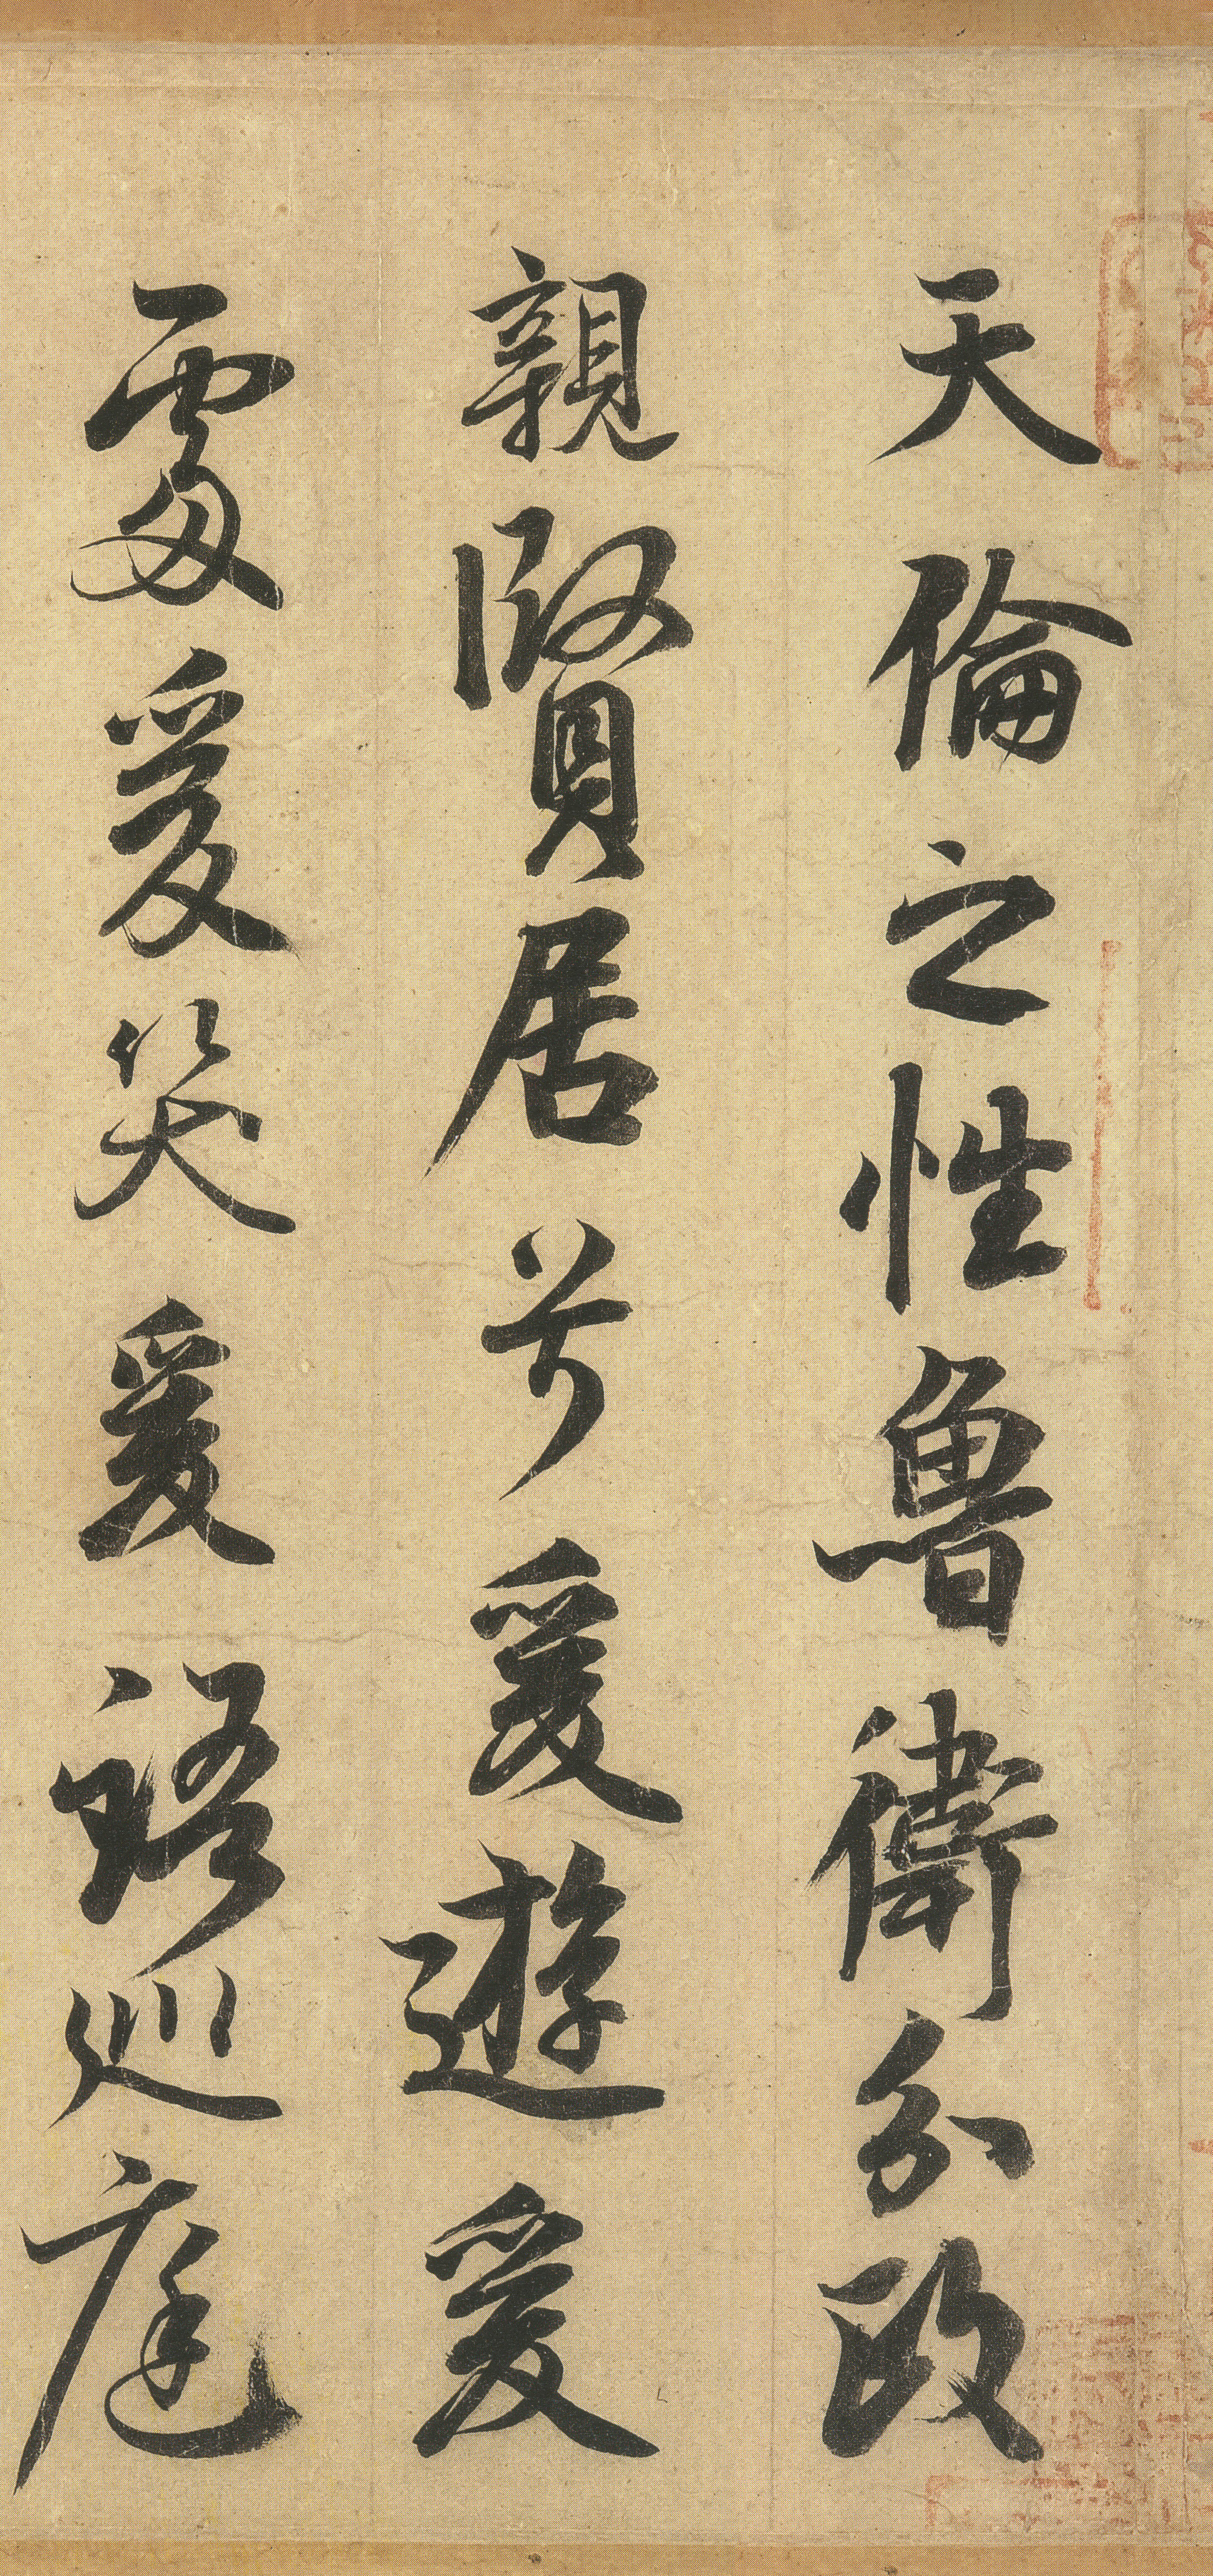 天倫之性魯衛分政
親賢居芳爰遊爰
處爰笑爰語巡庭